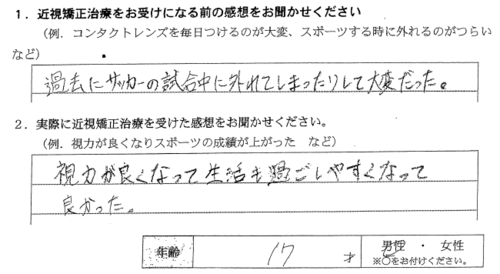 1．近視矯正治療をお受けになる前の感想をお聞かせください
（例．コンタクトレンズを毎日つけるのが大変、スポーツする時に外れるのがつらい
など）
過去にサッカーの試合中に外れてしまったりして大変だった。
2．実際に近視矯正治療を受けた感想をお聞かせください。
（例．視力が良くなりスポーツの成績が上がった　など）
視力が良くなって生活も過ごしやすくなって
良かった。
年齢　17　才　男性　・　女性
※○をお付けください。